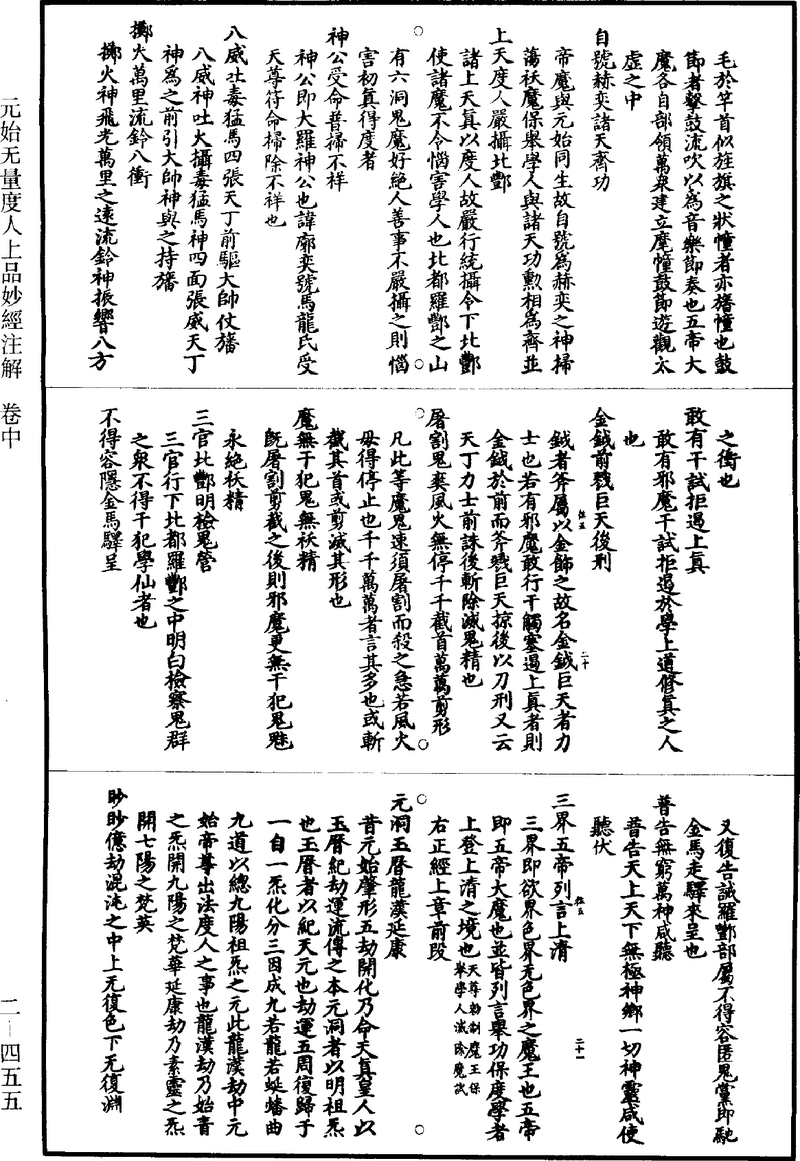 毛於竿首似旌旗之狀幢者亦旛幢也鼓
節者擊鼓流吹以為音樂節奏也五帝大
魔各自部領萬衆建立麾幢鼓節遊觀太
虛之中
自號赫奕諸天齊功
帝魔與元始同生故自號為赫奕之神掃
蕩袄魔保舉學人與諸天功勳相為齊並
上天度人嚴攝北酆
諸上天真以度人故嚴行統攝令下北酆
使諸魔不令惱害學人也北都羅酆之山
有六洞鬼魔好絕人善事不嚴攝之則惱
害初真得度者
神公受命普掃不祥
神公即大羅神公也諱廓奕號馬龍氏受
天尊符命掃除不祥也
八威吐毒猛馬四張天丁前驅大帥仗旛
八威神吐火攝毒猛馬神四面張威天丁
神為之前引大帥神與之持旛
擲火萬里流鈴八衝
擲火神飛光萬里之遠流鈴神振響八方
之衝也
敢有干試拒遏上真
敢有邪魔干試拒遏於學上道修真之人
也
金鉞前戮巨天後刑
鉞者斧屬以金飾之故名金鉞巨天者力
士也若有邪魔敢行干觸塞遏上真者則
金鉞於前而斧戮巨天掠後以刀刑又云
天丁力士前誅後斬除滅鬼精也
屠割鬼爽風火無停千千截首萬萬剪形
凡此等魔鬼速須屠割而殺之急若風火
毋得停止也千千萬萬者言其多也或斬
截其首或剪滅其形也
魔無干犯鬼無袄精
既屠割剪截之後則邪魔更無干犯鬼魅
永絕袄精
三官北酆明檢鬼營
三官行下北都羅酆之中明白檢察鬼群
之衆不得干犯學仙者也
不得容隱金馬驛呈
又復告誡羅酆部屬不得容匿鬼黨即馳
金馬走驛來呈也
普告無窮萬神咸聽
普告天上天下無極神鄉一切神靈咸使
聽伏
三界五帝列言上清
三界即欲界色界无色界之魔王也五帝
即五帝大魔也並皆列言舉功保度學者
上登上清之境也天尊勑制魔王保舉學人滅除魔試
右正經上章前段
元洞玉曆龍漢延康
昔元始肇形五劫開化乃命天真皇人以
玉曆紀劫運流傳之本元洞者以明祖炁
也玉曆者以紀天元也劫運五周復歸于
一自一炁化分三因成九若龍若蜒蟠曲
九道以總九陽祖炁之元此龍漢劫中元
始帝尊出法度人之事也龍漢劫乃始青
之炁開九陽之梵華延康劫乃素靈之炁
開七陽之梵英
眇眇億劫混沌之中上无復色下无復淵
元始无量度人上品妙經注解 卷中
二—四五五